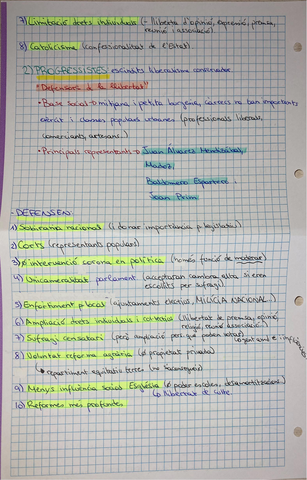 7) Limitació drets individuals (- llibertat d'opinió, expressió, premsa,
reunió i associació)
8) Catolicisme (confessionalitat de l'Estat)
2) PROGRESSISTES escindits liberalisme conservador
"Defensors de la llibertat"
• Base Social → mitjana i petita burgesia, càrrecs no tan importants
exèrcit i classes populars urbanes (professionals liberals,
comerciants, artesans...)
• Principals representants → Juan Álvarez Mendizábal,
Madoz,
Baldomero Espartero i
Joan Prim
- DEFENSEN:
1) Sobirania nacional (i donar importància p. legislatiu)
2) Corts (representants populars)
3) Ø intervenció corona en política (només funció de moderar)
4) Unicameralitat parlament (acceptaran cambra alta si eren
escollits per sufragi)
5) Enfortiment p. local (ajuntaments escollits, MILÍCIA NACIONAL...)
6) Ampliació drets individuals i col·lectius (llibertat de premsa, opinió,
religió, reunió, associació...)
7) Sufragi censatari (però ampliació pers. què poden votar)
↳ gent amb € i influència
8) Voluntat reforma agrària (Ø propietat privada)
↳ repartiment equitatiu terres (no
9) Menys influència social Església (Ø poder escoles, desamortitzacions)
↳ llibertat de culte.
10) Reformes més profundes.